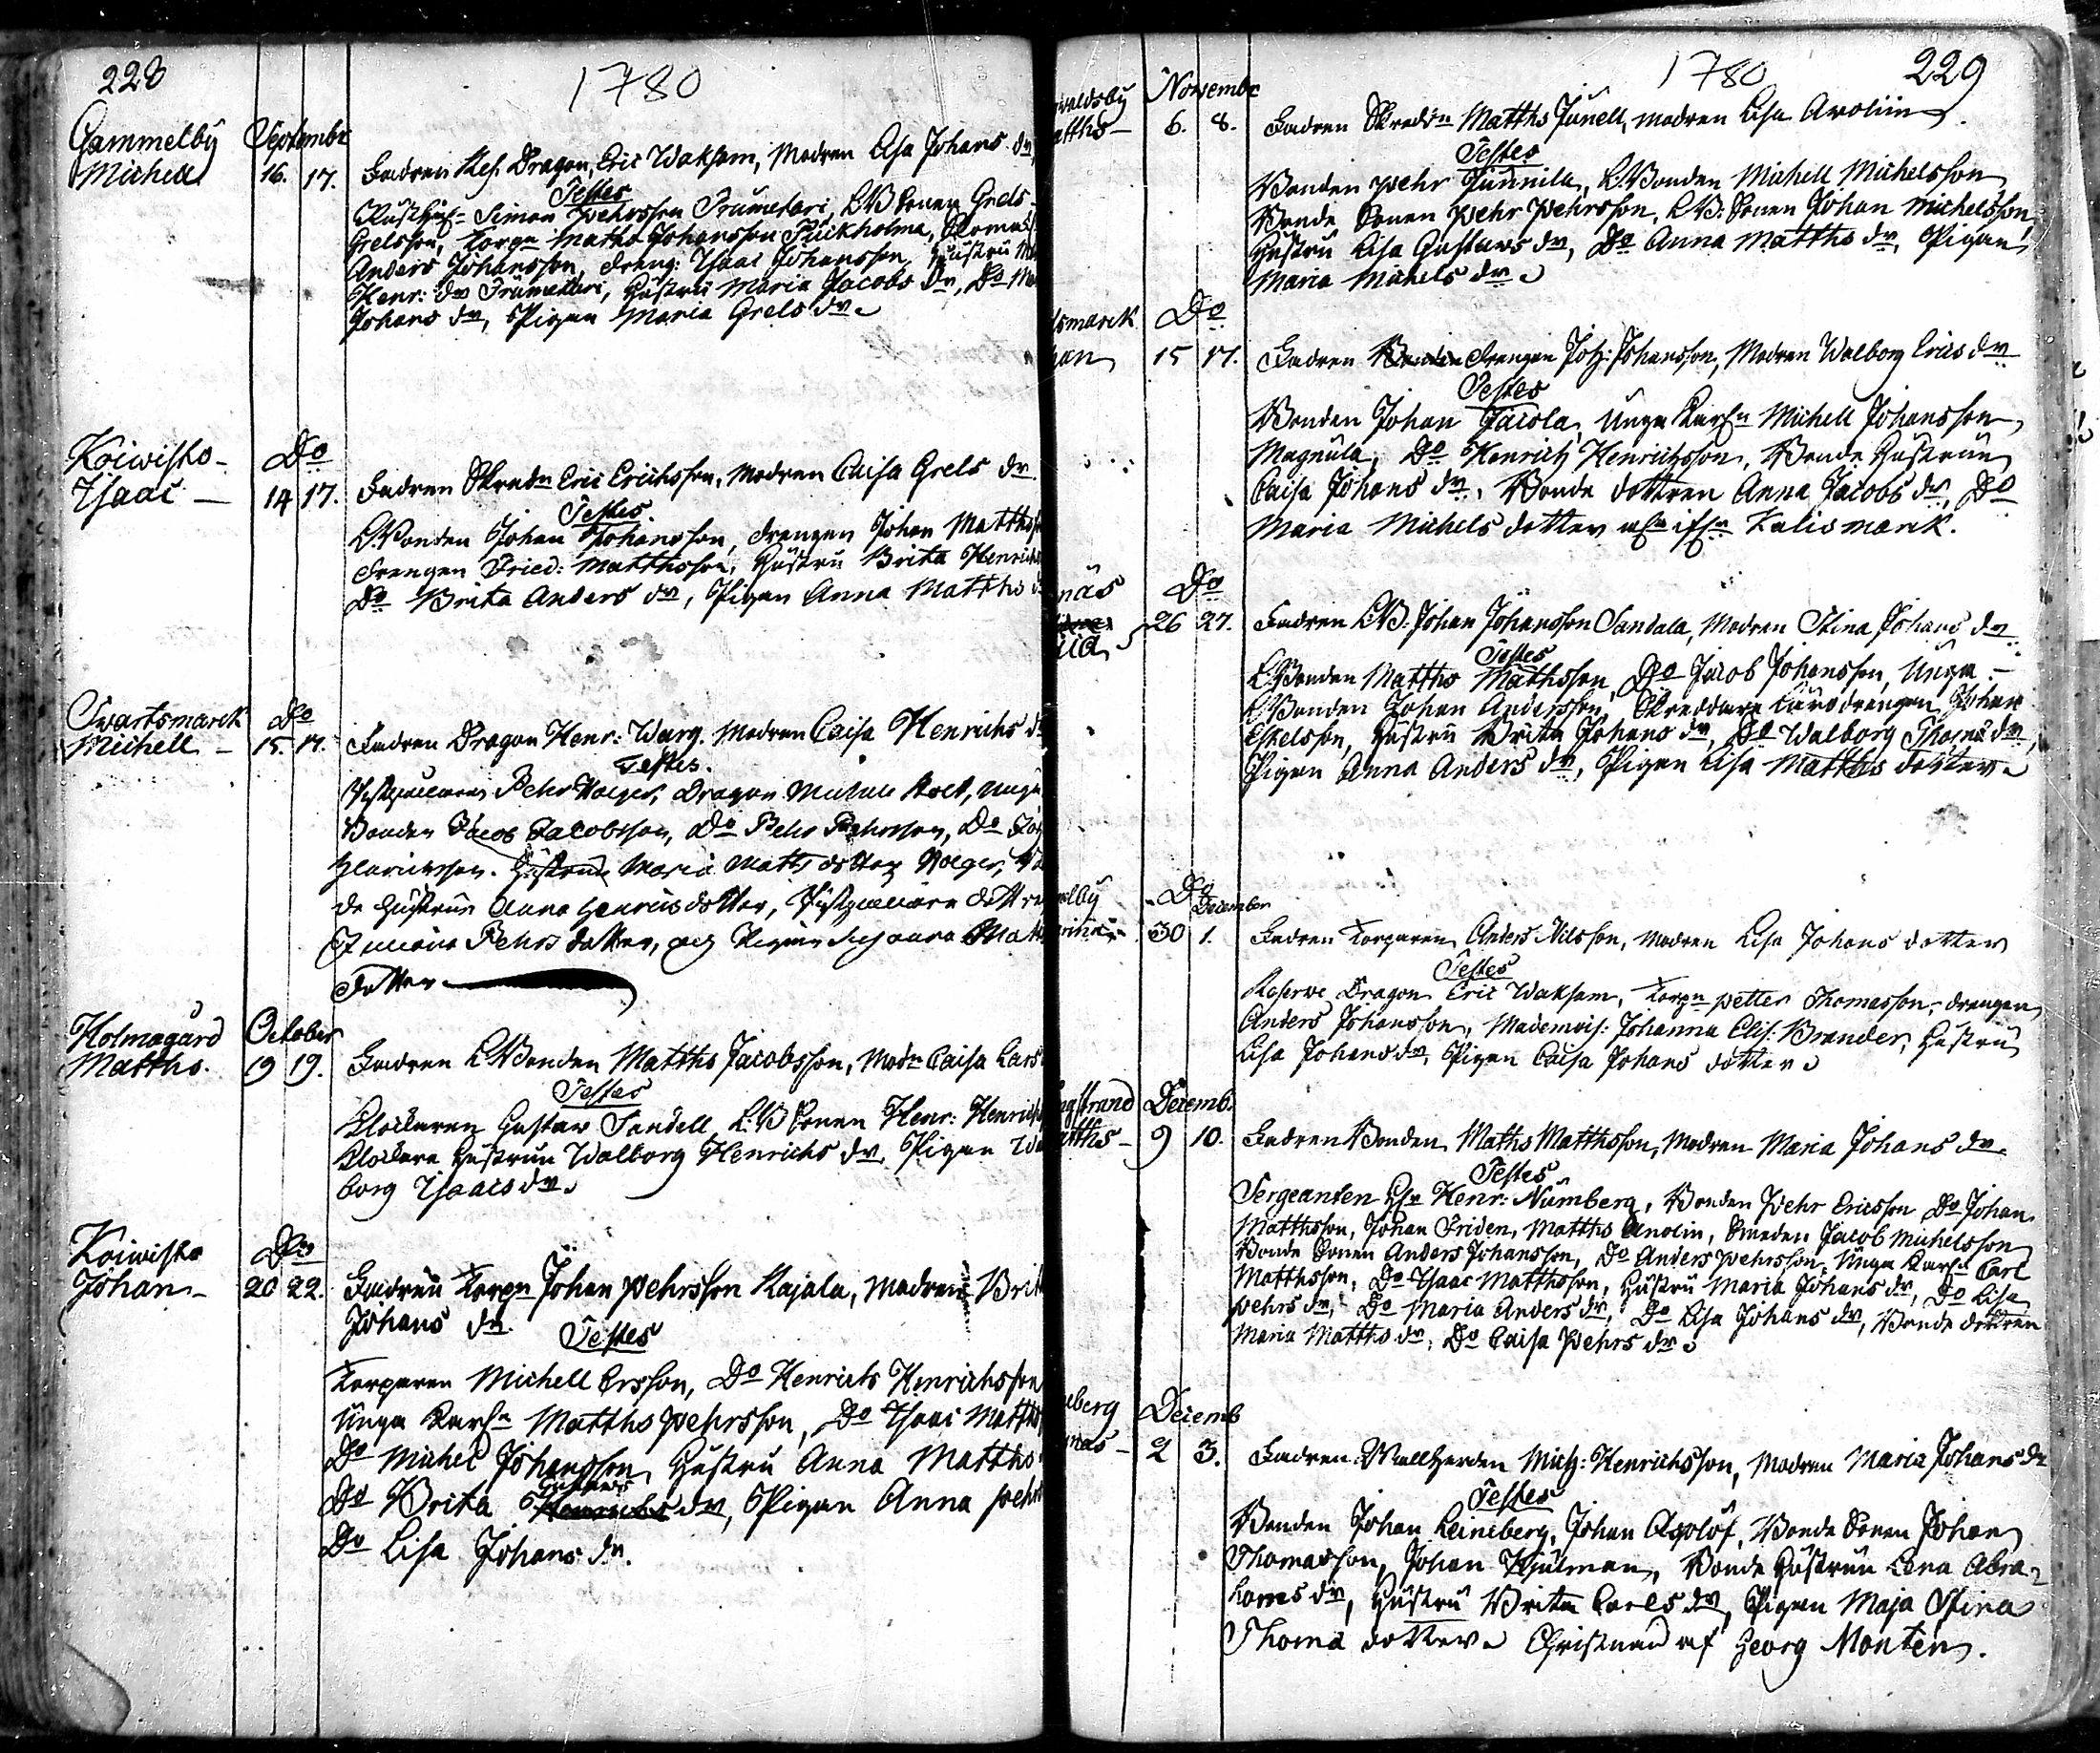 228
1780
Gammelby Septembr
Michell 16. 17. Fadren Res. Dragon, Eric Waksam, Modren Lisa Johans dr
Testes
Simon Pehrsson Trumetari, LB Sonen Grels
Grelsson, Torpn Matths Johansson Puckholma,
Anders Johansson, dreng: Isaac Johansson, Hustru
Henr: dr Trumetari, Hustru Maria Jacobs dr, Do
Johans dr, Pigan Maria Grels dr
Koiwisto Do
Isaac 14 17. Fadren Skredn Eric Erichsson, Modren Caisa Grels dr
Testes.
LBonden Johan Johansson, drengen Johan Matths
drengen Fried: Matthsson, Hustru Brita Henrichs
Do Brita Anders dr, Pigan Anna Matths
Swartsmarck Do
Michell 15. 17. Fadren Dragon Henr: Warg. Modren Caisa Henrichs dr
Testes.
Pehr Dragon
Bonden Jacob Jacobsson, Do Pehr Pehrsson, Do
Henricsson. Hustrun Maria Maths dotter
de Hustrun Anna Henrics dotter,
Pehrs dotter, och Pigan
dotter
Holmagård October
Matths. 19 19. Fadren LBonden Matths Jacobsson, Modn Caisa Lars
Testes
Klockaren Gustav Sandell, L:B Sonen Henr: Henrichs
Klockare Hustrun Walborg Henrichs dr, Pigan Wal
borg Isaacs dr
Koiwisto Do
Johan 20 22. Fadren Torpn Johan Pehrsson Kajala, Modren Brit
Johans dr Testes
Torparen Michell Ersson, Do Henrich Henrichsson
Unga Karln Matths Pehrsson, Do Isaac Matths
Do Michel Johansson, Hustru Anna Matths
Do Brita dr, Pigan Anna Pehrs
Do Lisa Johans dr.
1780 229
waldsby Novembr
atths 6. 8. Fadren Skreddn Matths Junell, modren Lisa Aroliin
Testes
Bonden Pehr Junnila, L:Bonden Michell Michelsson
Bonde Sonen Pehr Pehrsson, LB: Sonen Johan Michelsson
Hustru Lisa Gustavs dr, Do Anna Matths dr, Pigan
Maria Michels dr
smarck Do
han 15 17. Fadren Drengen Joh: Johansson, Modren Walborg Erics dr
Testes
Bonden Johan Jacola, Unga Karln Michell Johansson
Magnula, Do Henrich Henrichsson, Bonde Hustrun
Caisa Johans dr, Bonde dottren Anna Jacobs dr, Do
Maria Michels dotter Kalismarck.
näs Do
26 27. Fadren LB: Johan Johansson Sandala, Modren Stina Johans dr
Testes
L:Bonden Matths Mathsson, Do Jacob Johansson, Unga
LBonden Johan Andersson, Skreddare Läro drengen Johan
Hustru Brita Johans dr, Do Walborg Thomæ dr
Pigan Anna Anders dr, Pigan Lisa Matths dotter
elby Do December
30 1. Fadren Torparen Anders Nilsson, Modren Lisa Johans dotter
Testes
Reserve Dragon Eric Waksam, Torpn Petter Thomasson, drengen
Anders Johansson, Mademois: Johanna Elis: Brander, Hustru
Lisa Johans dr, Pigan Caisa Johans dotter
ngstrand Decemb.
atths 9 10. Fadren Bonden Maths Matthsson, Modren Maria Johans dr
Testes
Sergeanten Henr: Nümberg, Bonden Pehr Ericsson Do Johan
Matthsson, Johan Friden, Matths Anolin, Smeden Jacob Michelsson
Bonde Sonen Anders Johansson, Do Anders Pehrsson, Unga Karln Carl
Matthsson, Do Isaac Matthsson, Hustru Maria Johans dr, Do Lisa
Pehrs dr, Do Maria Anders dr, Do Lisa Johans dr, Bonde dottren
Maria Matths dr, Do Caisa Pehrs dr
eberg Decemb
2 3. Fadren Wallherden Mich: Henrichsson, Modren Maria Johans dr
Testes
Bonden Johan Leineberg, Johan Agolöf, Bonde Sonen Johan
Thomasson, Johan Hjulman, Bonde Hustrun Lena Abra
hams dr, Hustru Brita Carls dr, Pigan Maja Stina
Thomæ dotter Christnad af Georg Monten.